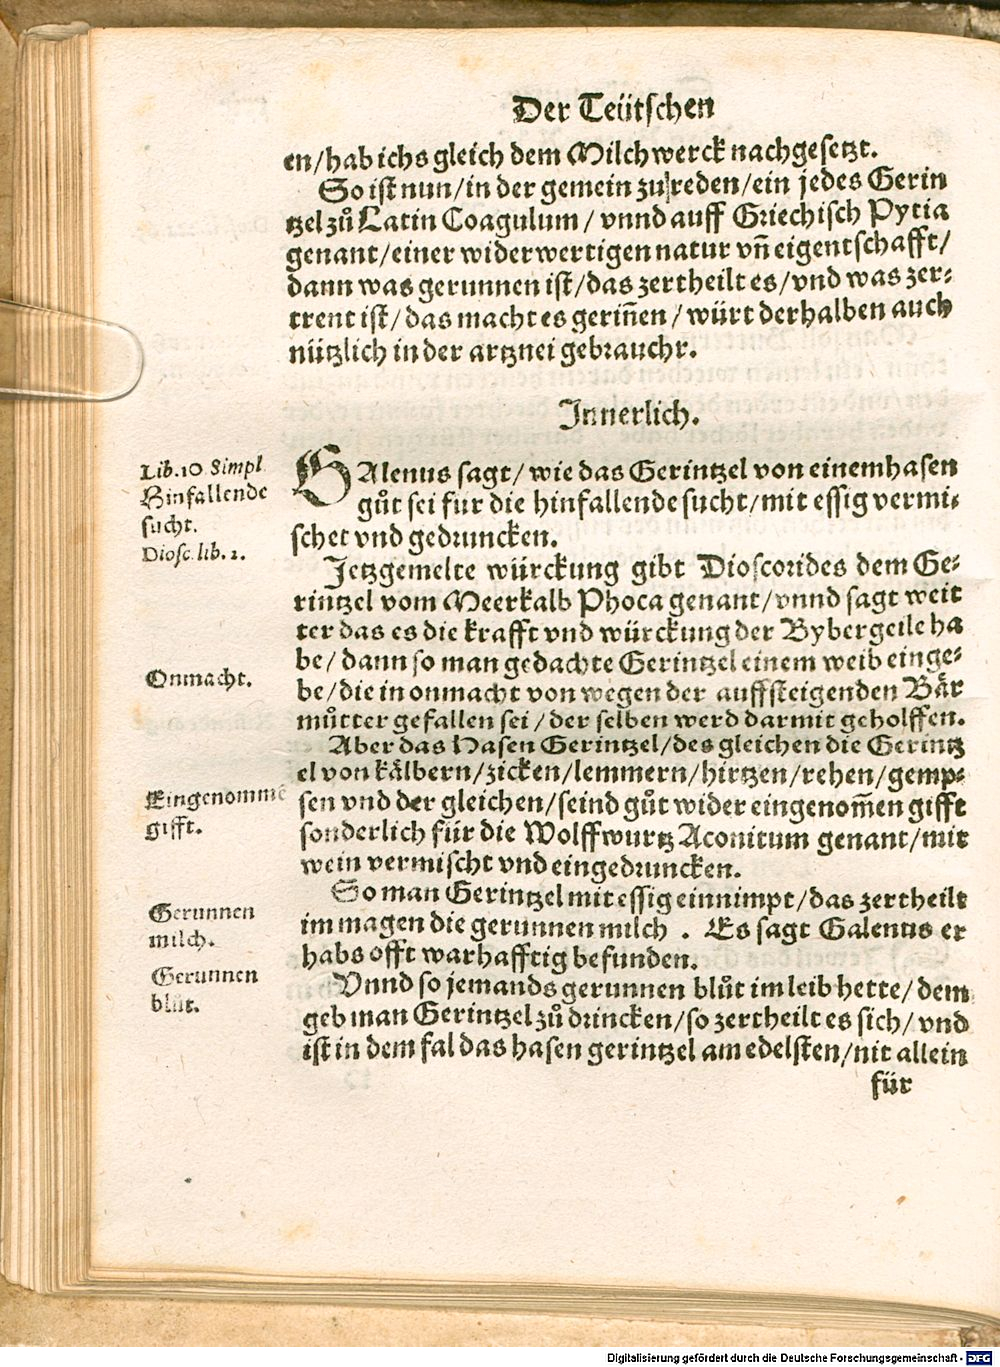 Der Teütschen
en/hab ichs gleich dem Milchwerck nachgesetzt.
So ist nun/in der gemein zu reden/ein jedes Gerin
tzel zů Latin Coagulum/vnnd auff Griechisch Pytia
genant/einer widerwertigen natur vñ eigentschafft/
dann was gerunnen ist/das zertheilt es/vnd was zer-
trent ist/das macht es geriñen/würt derhalben auch
nützlich in der artznei gebrauchr.
Innerlich.
Lib. 10 Simpl
Hinfallende
sucht.
Diosc. lib. 2.
GAlenus sagt/wie das Gerintzel von einem hasen
gůt sei fur die hinfallende sucht/mit essig vermi-
schet vnd gedruncken.
Jetzgemelte würckung gibt Dioscorides dem Ge-
rintzel vom Meerkalb Phoca genant/vnnd sagt weit
ter das es die krafft vnd würckung der Bybergeile ha
be/dann so man gedachte Gerintzel einem weib einge-
Onmacht.
be/die in onmacht von wegen der auffsteigenden Bär
můtter gefallen sei/der selben werd darmit geholffen.
Aber das Hasen Gerintzel/des gleichen die Gerintz
el von kälbern/zicken/lemmern/hirtzen/rehen/gemp-
Eingenommē
gifft.
sen vnd der gleichen/seind gůt wider eingenom̃en gifft
sonderlich für die Wolffwurtz Aconitum genant/mit
wein vermischt vnd eingedruncken.
So man Gerintzel mit essig einnimpt/das zertheilt
Gerunnen
milch.
im magen die gerunnen milch . Es sagt Galenus er
habs offt warhafftig befunden.
Gerunnen
blůt.
Vnnd so jemands gerunnen blůt im leib hette/dem
geb man Gerintzel zů drincken/so zertheilt es sich/vnd
ist in dem fal das hasen gerintzel am edelsten/nit allein
für
Digitalisierung gefördert durch die Deutsche Forschungsgemeinschaft - DFG